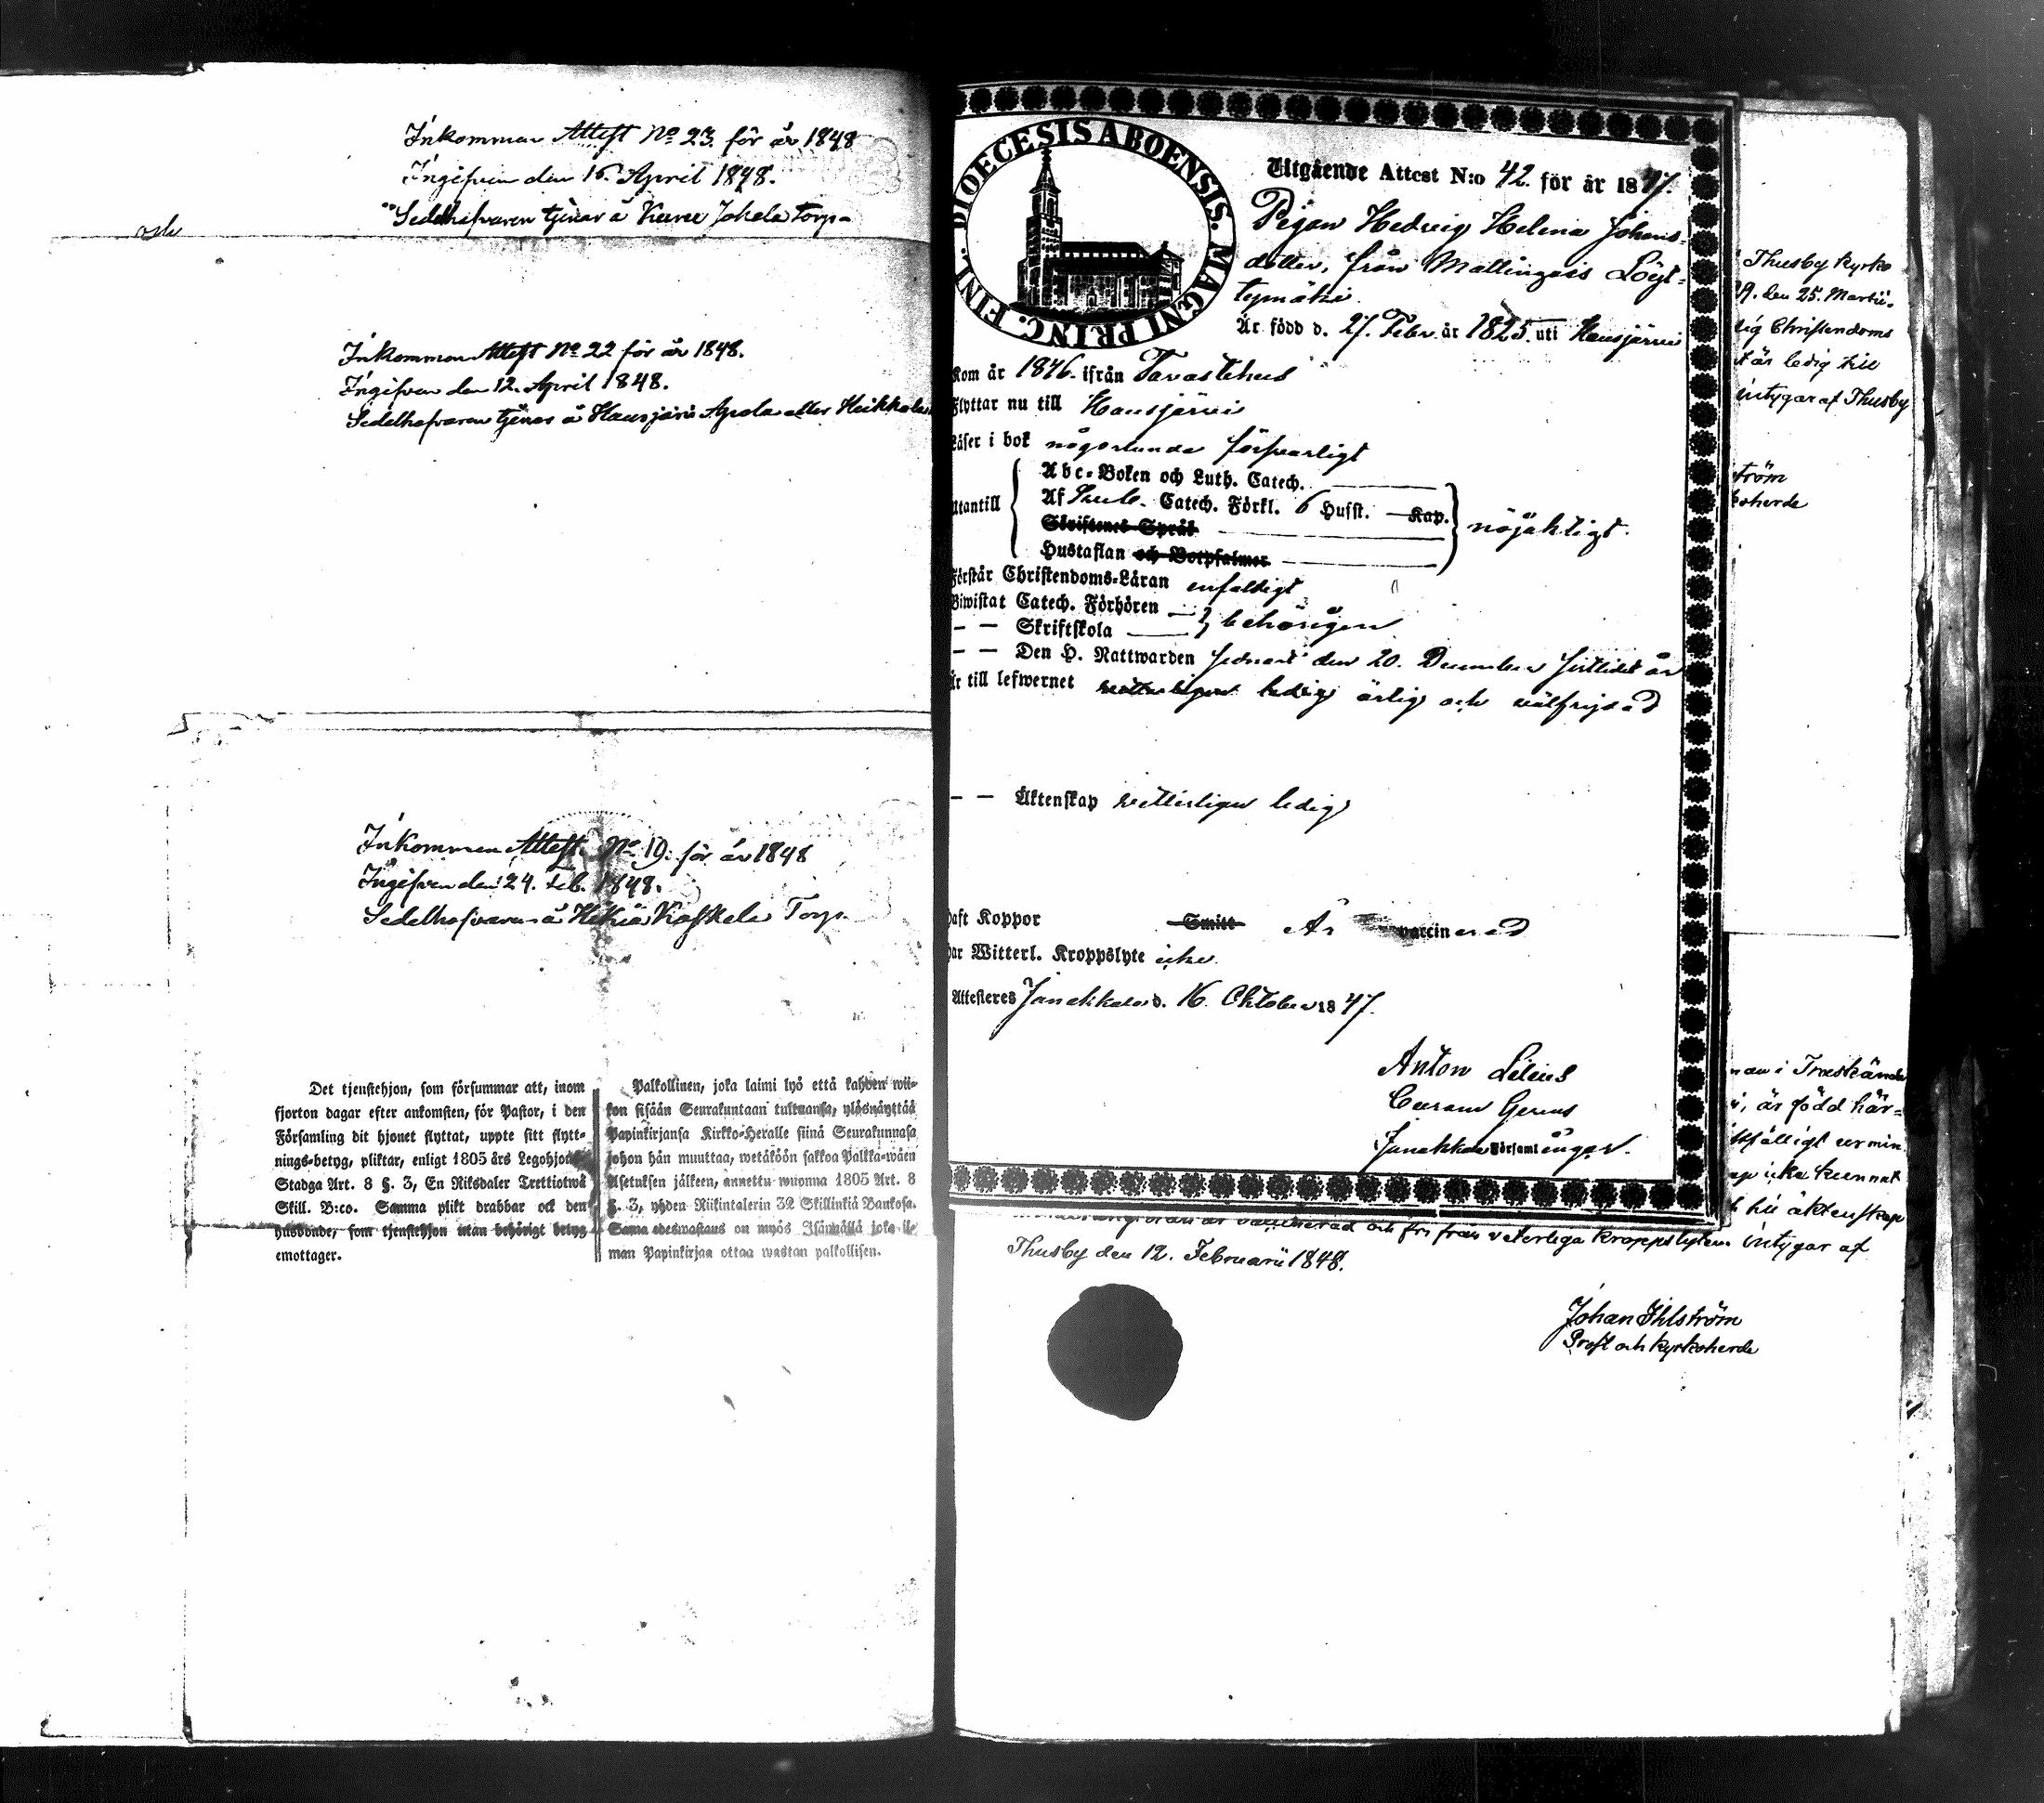 Inkommen Attest No 23. för år 1848
Ingifven den 16. April 1848.
Sedelhafvaren tjenar å Kuru Johela Torp.
och
Inkommen Attest No 22 för år 1848.
Ingifven den 12. April 1848.
Sedelhafvaren tjenar å Hausjärvi Apola eller Heikkola
Inkommen Attest No 19. för år 1848
Ingifven den 24. Feb. 1848.
Sedelhafvaren å Hikiä Kaskela Torp.
Det tjenstehjon, som försummar att, inom
fjorton dagar efter ankomsten, för Pastor, i den
Församling dit hjonet flyttat, uppte sitt flytt-
nings-betyg, pliktar, enligt 1805 års Legohjons
Stadga Art. 8 §. 3, En Riksdaler Trettiotwå
Skill. B:co. Samma plikt drabbar ock den
husbonde, som tjenstehjon utan behörigt betyg
emottager.
Palkollinen, joka laimi lyö että kahden wii-
kon sisään Seurakuntaan tultuansa, ylösnäyttää
Papinkirjansa Kirkko-Heralle siinä Seurakunnasa
johon hän muuttaa, wetäköön sakkoa Palkka-wäen
Asetuksen jälkeen, annettu wuonna 1805 Art. 8
§. 3, yhden Riikintalerin 32 Skillinkiä Bankosa.
Sama edeswastaus on myös Isännällä joka il-
man Papinkirjaa ottaa wastan palkollisen.
DIOECESIS ABOENSIS. MAGNI PRINC. FINL.
Utgående Attest N:o 42. för år 1847.
Pigan Hedvig Helena Johans-
dotter, från Mallinges Löyt-
tymäki
Är född d. 27. Febr. år 1825. uti Hausjärvi
Kom år 1846. ifrån Tavastehus
Flyttar nu till Hausjärvi
Läser i bok någorlunda försvarligt
Utantill
Abc-Boken och Luth. Catech.
Af Catech. Förkl. 6 Hufst. Kap.
Skriftenes Språk
Hustaflan och Botpsalmer
nöjaktigt.
Förstår Christendoms-Läran enfaldigt
Biwistat Catech. Förhören
Skriftskola
behörigen
Den H. Nattwarden senast den 20. December sistlidet år
Är till lefwernet ledig ärlig och välfrejdad
Äktenskap vetterligen ledig
Haft Koppor Smitt Är vaccinerad
Har Witterl. Kroppslyte icke
Attesteres Janakkala d. 16. Oktober 1847.
Anton Lilius
Curam Gerens
Janakkala Församlingar.
Thusby kyrko
den 25. Martii
lig Christendoms
är ledig till
intygar af Thusby
ström
koherde
i Träskända
är född här-
icke kunnat
till äktenskap
vaccinerad och fri från veterliga kroppslyten intygar af
Thusby den 12. Februarii 1848.
Johan Ihlström
Prost och kyrkoherde